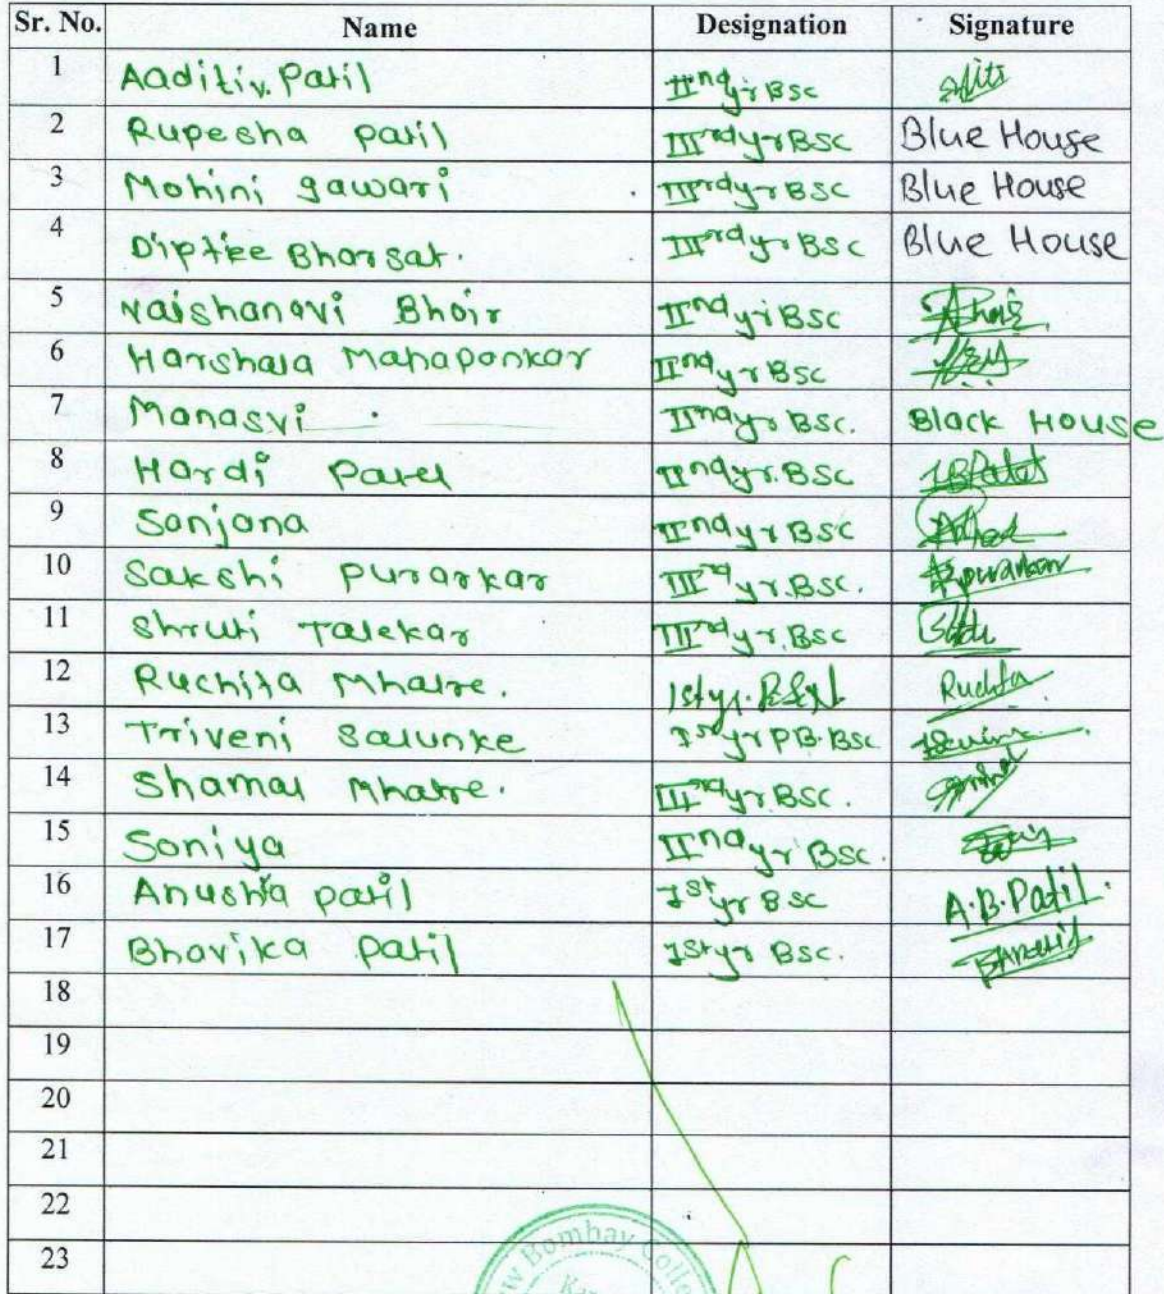 Sr. No. Name Designation Signature
1 Aaditi v. Patil IInd yr BSC
2 Rupesha Patil IIIrd yr BSC Blue House
3 Mohini gawari IIIrd yr BSC Blue House
4 Diptee Bharsat. IIIrd yr BSC Blue House
5 Vaishanavi Bhoir IInd yr BSC
6 Harshala Mahapankar IInd yr BSC
7 Manasvi IInd yr BSC. Black House
8 Hardi Patel IInd yr. BSC HBPatel
9 Sanjana IInd yr BSC
10 Sakshi Purarkar IIIrd yr. BSC.
11 Shruti Talekar IIIrd yr. BSC
12 Ruchita Mhatre. 1st yr. Ruchita
13 Triveni Salunke Ist yr P.B. BSC
14 Shamal Mhatre. IIIrd yr. BSC.
15 Soniya IInd yr BSC.
16 Anushta Patil Ist yr BSC A.B.Patil.
17 Bhavika Patil Ist yr BSC.
18
19
20
21
22
23
Bombay